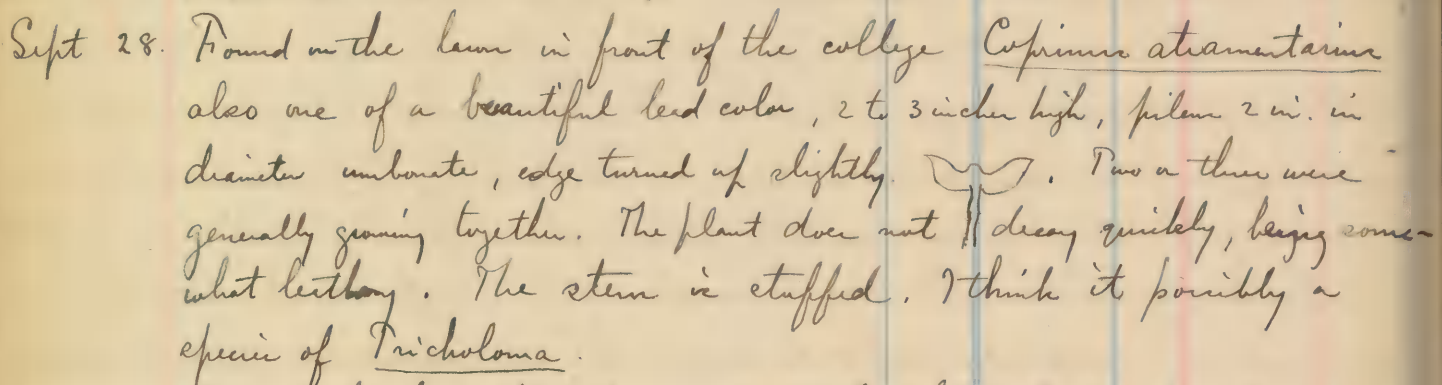 Sept 28. Found on the lawn in front of the college Coprinus atramentarius
also one of a beautiful lead color, 2 to 3 inches high, pileus 2 in. in
diameter umbonate, edge turned up slightly. Two or three were
generally growing together. The plant does not decay quickly, being some-
what leathery. The stem is stuffed. I think it possibly a
species of Tricholoma.